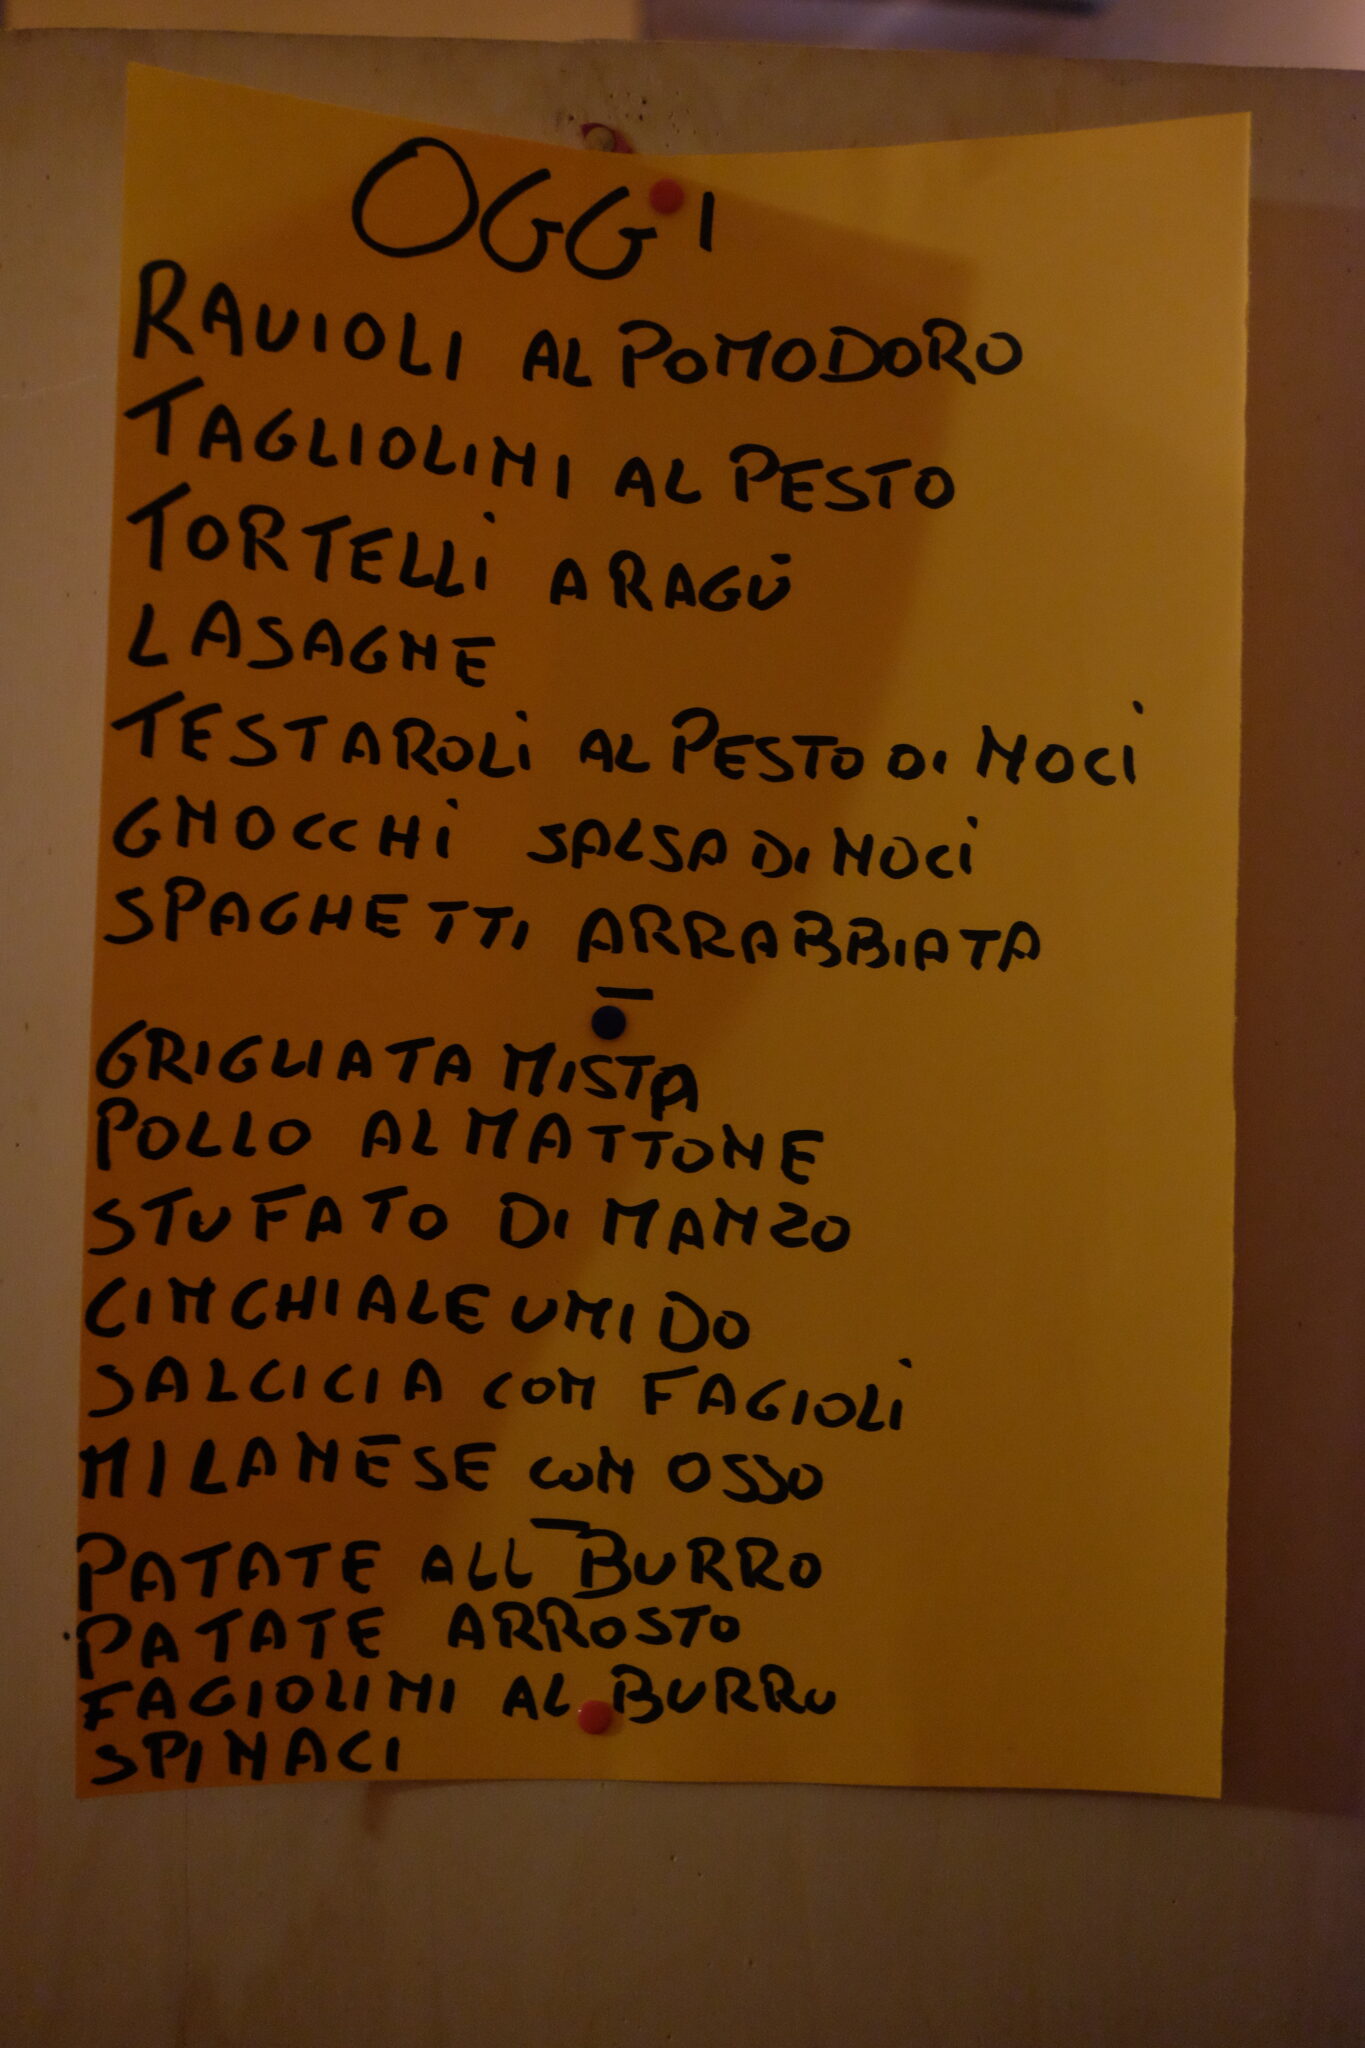 OGGI
RAVIOLI AL POMODORO
TAGLIOLINI AL PESTO
TORTELLI A RAGÙ
LASAGNE
TESTAROLI AL PESTO DI NOCI
GNOCCHI SALSA DI NOCI
SPAGHETTI ARRABBIATA
—
GRIGLIATA MISTA
POLLO AL MATTONE
STUFATO DI MANZO
CINCHIALE UMIDO
SALCICIA CON FAGIOLI
MILANESE CON OSSO
—
PATATE ALL BURRO
PATATE ARROSTO
FAGIOLINI AL BURRO
SPINACI